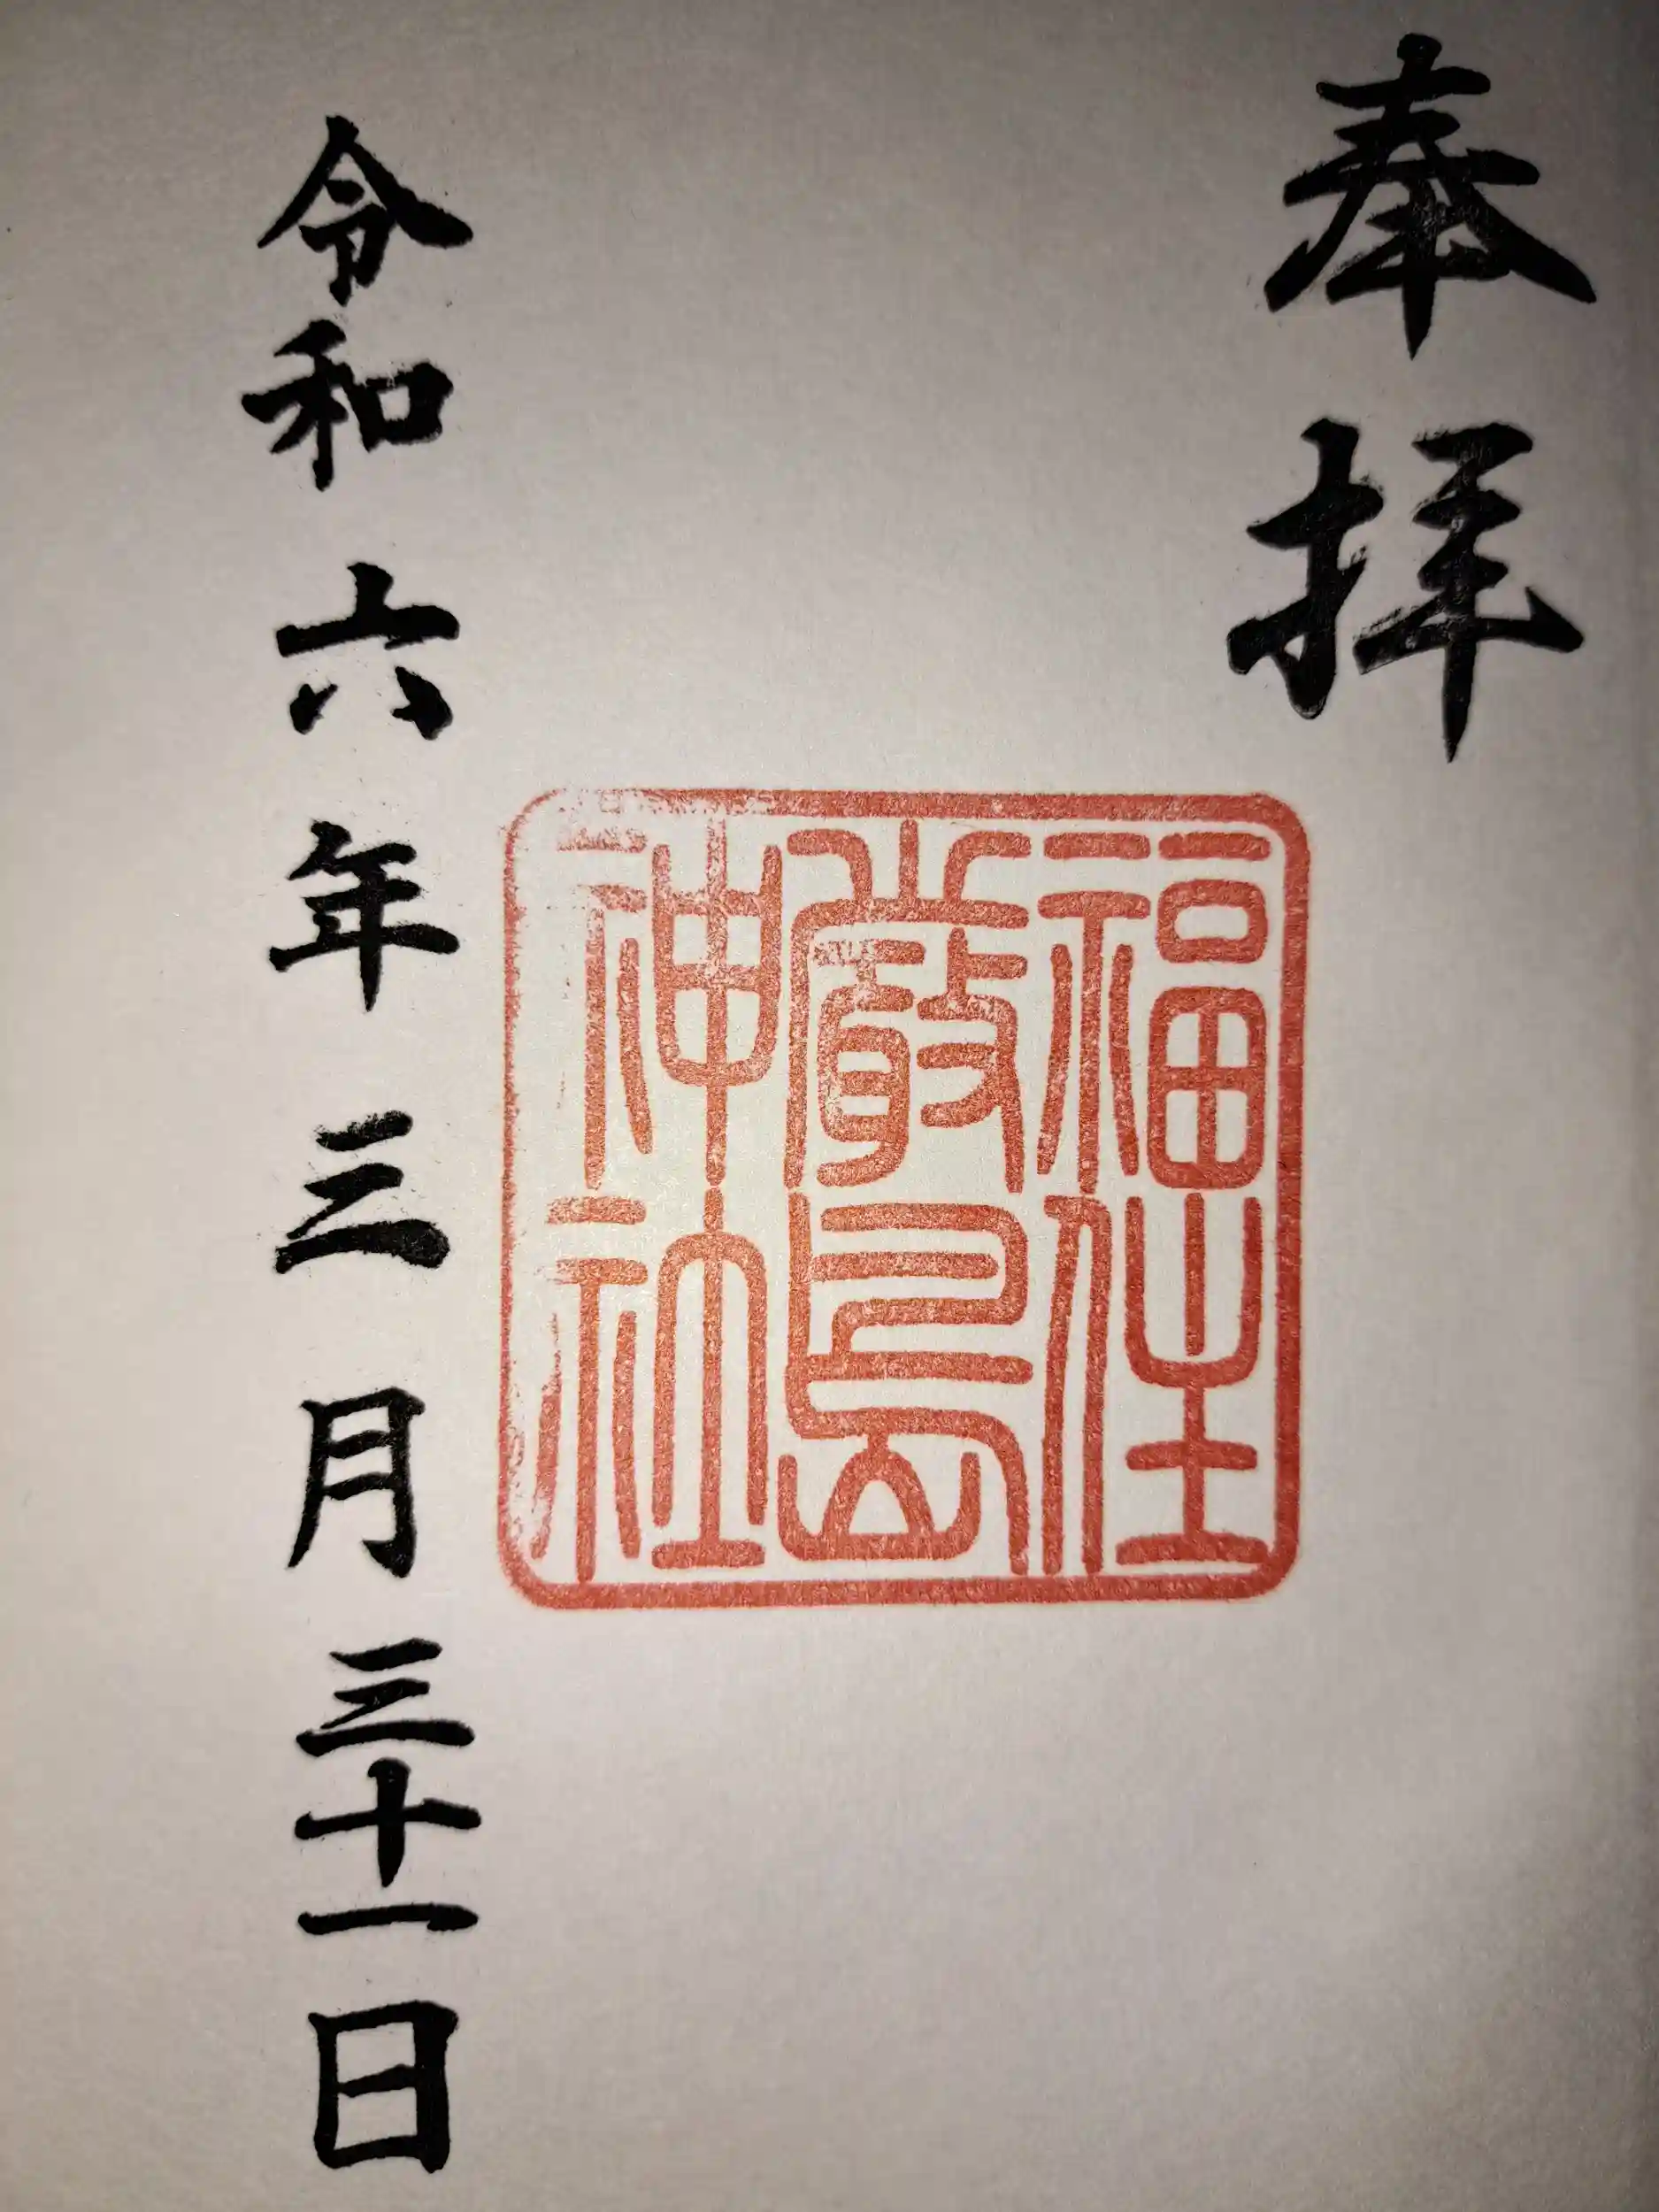 奉拝
福住
厳島
神社
令和六年三月三十一日